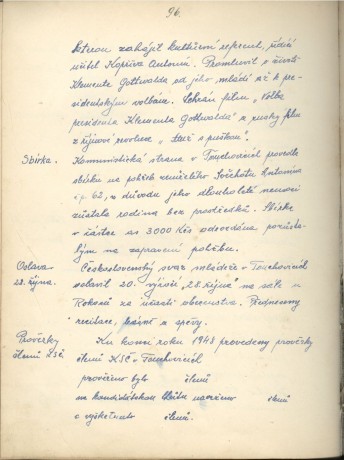 96.
kterou zahájil kulturní referent, řídící
učitel Kopřiva Antonín. Promluvil o životě
Klementa Gottwalda od jeho mládí až k pre-
sidentským volbám. Sehrán film „Volba
presidenta Klementa Gottwalda" a ruský film
z říjnové revoluce „Muž s puškou".
Sbírka. Komunistická strana v Touchovicích provedla
sbírku na pohřeb zemřelého Antonína
z čp. 62, z důvodu jeho dlouholeté nemoci
zůstala rodina bez prostředků. Sbírka
v částce as 3000 Kčs odevzdána pozůsta-
lým na zapravení pohřbu.
Oslava Československý svaz mládeže v Touchovicích
28. října. oslavil 30. výročí 28. října na sále u
za účasti občanstva. Předneseny
recitace, básně a zpěvy.
Prověrky Ku konci roku 1948 provedeny prověrky
členů KSČ. členů KSČ v Touchovicích
prověřeno bylo členů
na kandidátskou lhůtu navrženo členů
a vyškrtnuto členů.